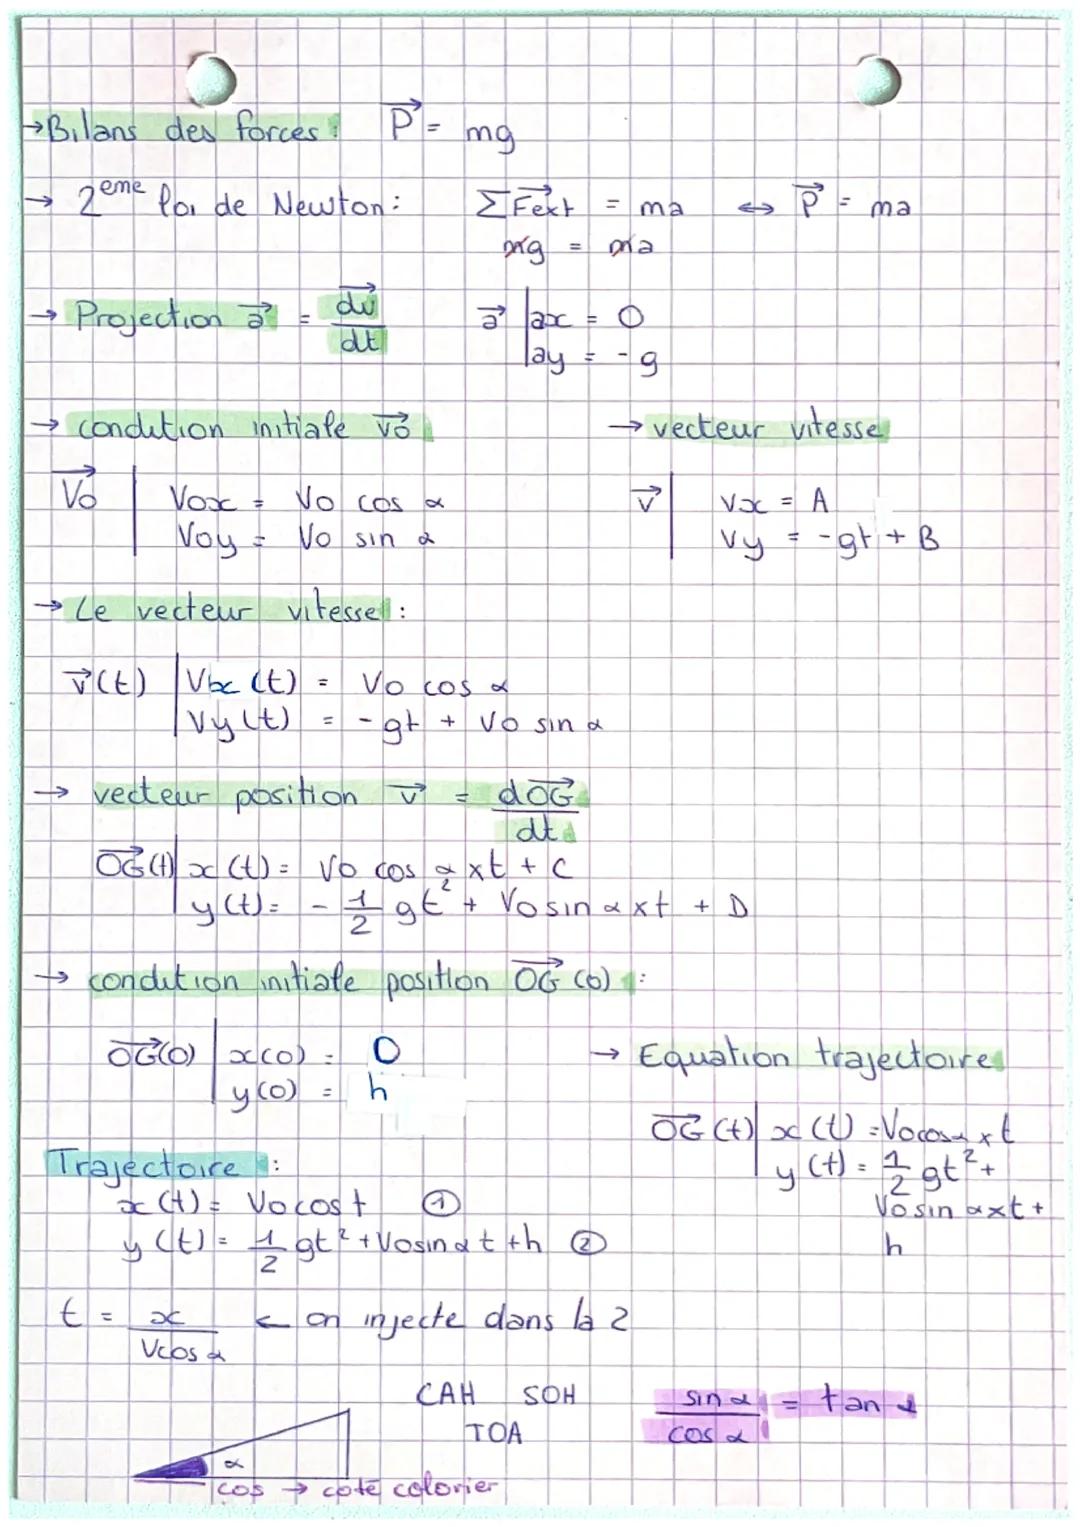 →Bilans des forces : P⃗ = mg
→ 2eme loi de Newton : ΣF⃗ext = ma ↔ P⃗ = ma
mg = ma
→ Projection a⃗ = dv⃗/dt a⃗ | ax = 0
ay = -g
→ condition initiale v⃗o → vecteur vitesse
V⃗o | Vox = Vo cos α v⃗ | Vx = A
Voy = Vo sin α Vy = -gt + B
→ Le vecteur vitesse :
v⃗(t) | Vx (t) = Vo cos α
Vy(t) = -gt + Vo sin α
→ vecteur position v⃗ = dOG⃗/dt
OG⃗(t) | x(t) = Vo cos α xt + C
y(t) = - 1/2 gt² + Vosin α xt + D
→ condition initiale position OG⃗ (o) :
OG⃗(0) | x(o) = 0
y(o) = h
→ Equation trajectoire
OG⃗ (t) | x (t) = Vocosα xt
y (t) = 1/2 gt² +
Vosin αxt +
h
Trajectoire :
x (t) = Vocost ①
y (t) = 1/2 gt² + Vosinα t + h ②
t = x/Vcos α ← on injecte dans la 2
CAH SOH
TOA
sin α/cos α = tan α
α
cos → coté colorier